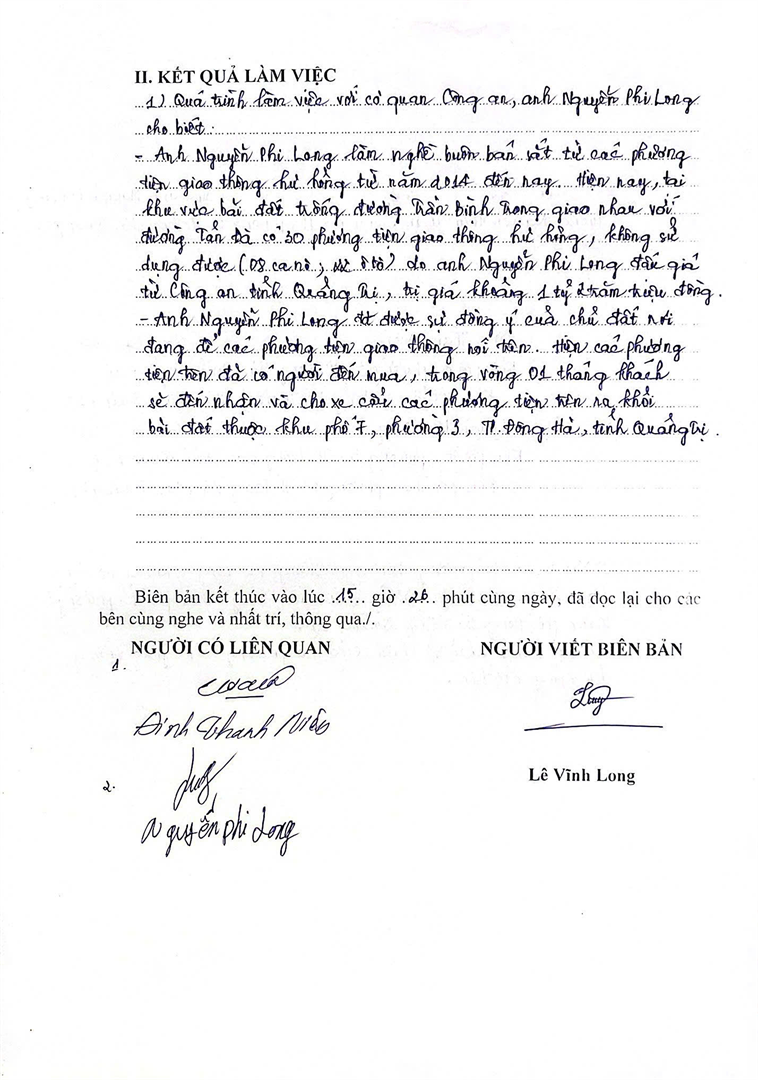 II. KẾT QUẢ LÀM VIỆC
1) Quá trình làm việc với cơ quan Công an, anh Nguyễn Phi Long
cho biết:
- Anh Nguyễn Phi Long làm nghề buôn bán sắt từ các phương
tiện giao thông hư hỏng từ năm 2014 đến nay. Hiện nay, tại
khu vực bãi đất trống đường Trần Bình Trọng giao nhau với
đường Tản Đà có 30 phương tiện giao thông hư hỏng, không sử
dụng được (08 ca nô, ô tô) do anh Nguyễn Phi Long đấu giá
từ Công an tỉnh Quảng Trị, trị giá khoảng 1 tỷ 2 trăm triệu đồng.
- Anh Nguyễn Phi Long được sự đồng ý của chủ đất nơi
đang để các phương tiện giao thông nói trên. Hiện các phương
tiện trên đã có người đến mua, trong vòng 01 tháng khách
sẽ đến nhận và cho xe cẩu các phương tiện trên ra khỏi
bãi đất thuộc khu phố 7, phường 3, TP. Đông Hà, tỉnh Quảng Trị.
Biên bản kết thúc vào lúc 15 giờ 26 phút cùng ngày, đã đọc lại cho các
bên cùng nghe và nhất trí, thông qua./.
NGƯỜI CÓ LIÊN QUAN
NGƯỜI VIẾT BIÊN BẢN
1.
Đinh Thanh
Lê Vĩnh Long
2.
Nguyễn Phi Long